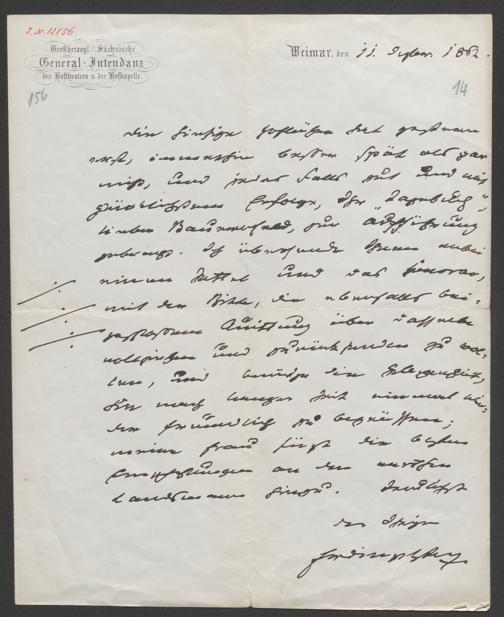 I.N. 12156
Großherzogl. Sächsische
General-Intendanz
des Hoftheaters u. der Hofkapelle.
Weimar, den 11. 1862.
156
14
Die hiesige Hofbühne hat gestern
erst, immerhin besser spät als gar
nicht, und jedes Falls gut und mit
günstigstem Erfolge, Ihr „Tagebuch",
lieber Bauernfeld, zur Aufführung
gebracht. Ich übersende Ihnen anbei
einen Zettel und das Honorar,
mit der Bitte, die ebenfalls bei-
geschlossene Quittung über dasselbe
vollziehen und zurücksenden zu wol-
len, und benütze die Gelegenheit,
Sie nach langer Zeit einmal wie-
der freundlich zu begrüßen;
meine Frau fügt die besten
Empfehlungen an den werthen
Landsmann hinzu.
der Ihrige